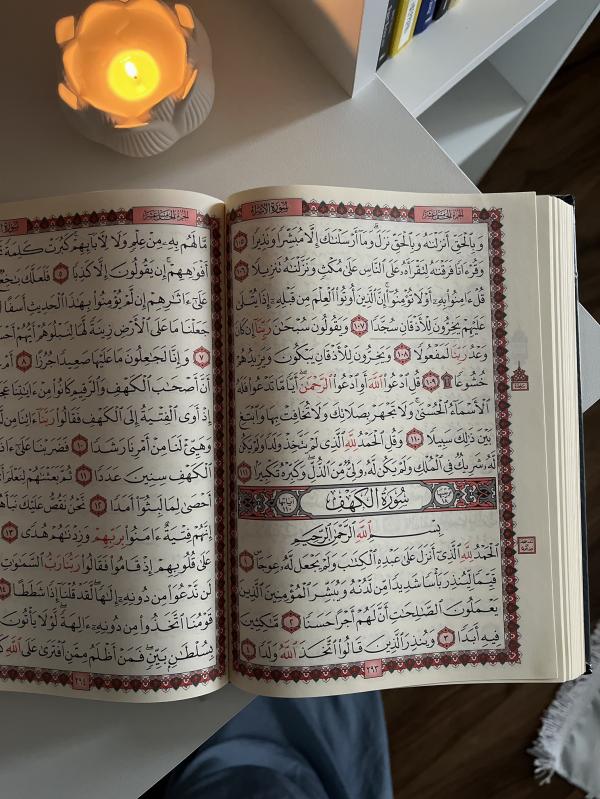 سُورَةُ الإِسْرَاء
الجزء الخامس عشر
وَبِٱلْحَقِّ أَنزَلْنَٰهُ وَبِٱلْحَقِّ نَزَلَ ۗ وَمَآ أَرْسَلْنَٰكَ إِلَّا مُبَشِّرًا وَنَذِيرًا ١٠٥
وَقُرْءَانًا فَرَقْنَٰهُ لِتَقْرَأَهُۥ عَلَى ٱلنَّاسِ عَلَىٰ مُكْثٍ وَنَزَّلْنَٰهُ تَنزِيلًا ١٠٦
قُلْ ءَامِنُوا۟ بِهِۦٓ أَوْ لَا تُؤْمِنُوٓا۟ ۚ إِنَّ ٱلَّذِينَ أُوتُوا۟ ٱلْعِلْمَ مِن قَبْلِهِۦٓ إِذَا يُتْلَىٰ
عَلَيْهِمْ يَخِرُّونَ لِلْأَذْقَانِ سُجَّدًا ١٠٧ وَيَقُولُونَ سُبْحَٰنَ رَبِّنَآ إِن كَانَ
وَعْدُ رَبِّنَا لَمَفْعُولًا ١٠٨ وَيَخِرُّونَ لِلْأَذْقَانِ يَبْكُونَ وَيَزِيدُهُمْ
خُشُوعًا ۩ ١٠٩ قُلِ ٱدْعُوا۟ ٱللَّهَ أَوِ ٱدْعُوا۟ ٱلرَّحْمَٰنَ ۖ أَيًّا مَّا تَدْعُوا۟ فَلَهُ
ٱلْأَسْمَآءُ ٱلْحُسْنَىٰ ۚ وَلَا تَجْهَرْ بِصَلَاتِكَ وَلَا تُخَافِتْ بِهَا وَٱبْتَغِ
بَيْنَ ذَٰلِكَ سَبِيلًا ١١٠ وَقُلِ ٱلْحَمْدُ لِلَّهِ ٱلَّذِى لَمْ يَتَّخِذْ وَلَدًا وَلَمْ يَكُن
لَّهُۥ شَرِيكٌ فِى ٱلْمُلْكِ وَلَمْ يَكُن لَّهُۥ وَلِىٌّ مِّنَ ٱلذُّلِّ ۖ وَكَبِّرْهُ تَكْبِيرًۢا ١١١
سُورَةُ الكَهْفِ
بِسْمِ ٱللَّهِ ٱلرَّحْمَٰنِ ٱلرَّحِيمِ
ٱلْحَمْدُ لِلَّهِ ٱلَّذِىٓ أَنزَلَ عَلَىٰ عَبْدِهِ ٱلْكِتَٰبَ وَلَمْ يَجْعَل لَّهُۥ عِوَجَا ١
قَيِّمًا لِّيُنذِرَ بَأْسًا شَدِيدًا مِّن لَّدُنْهُ وَيُبَشِّرَ ٱلْمُؤْمِنِينَ ٱلَّذِينَ
يَعْمَلُونَ ٱلصَّٰلِحَٰتِ أَنَّ لَهُمْ أَجْرًا حَسَنًا ٢ مَّٰكِثِينَ
فِيهِ أَبَدًا ٣ وَيُنذِرَ ٱلَّذِينَ قَالُوا۟ ٱتَّخَذَ ٱللَّهُ وَلَدًا ٤
٢٩٣
الجزء الخامس عشر
مَّا لَهُم بِهِۦ مِنْ عِلْمٍ وَلَا لِءَابَآئِهِمْ ۚ كَبُرَتْ كَلِمَةً
أَفْوَٰهِهِمْ ۚ إِن يَقُولُونَ إِلَّا كَذِبًا ٥ فَلَعَلَّكَ
عَلَىٰٓ ءَاثَٰرِهِمْ إِن لَّمْ يُؤْمِنُوا۟ بِهَٰذَا ٱلْحَدِيثِ أَسَفًا
جَعَلْنَا مَا عَلَى ٱلْأَرْضِ زِينَةً لَّهَا لِنَبْلُوَهُمْ أَيُّهُمْ
٧ وَإِنَّا لَجَٰعِلُونَ مَا عَلَيْهَا صَعِيدًا جُرُزًا ٨
أَنَّ أَصْحَٰبَ ٱلْكَهْفِ وَٱلرَّقِيمِ كَانُوا۟ مِنْ ءَايَٰتِنَا
إِذْ أَوَى ٱلْفِتْيَةُ إِلَى ٱلْكَهْفِ فَقَالُوا۟ رَبَّنَآ ءَاتِنَا مِن
وَهَيِّئْ لَنَا مِنْ أَمْرِنَا رَشَدًا ١٠ فَضَرَبْنَا عَلَىٰٓ
ٱلْكَهْفِ سِنِينَ عَدَدًا ١١ ثُمَّ بَعَثْنَٰهُمْ لِنَعْلَمَ
أَحْصَىٰ لِمَا لَبِثُوٓا۟ أَمَدًا ١٢ نَّحْنُ نَقُصُّ عَلَيْكَ نَبَأَهُم
إِنَّهُمْ فِتْيَةٌ ءَامَنُوا۟ بِرَبِّهِمْ وَزِدْنَٰهُمْ هُدًى ١٣
عَلَىٰ قُلُوبِهِمْ إِذْ قَامُوا۟ فَقَالُوا۟ رَبُّنَا رَبُّ ٱلسَّمَٰوَٰتِ
لَن نَّدْعُوَا۟ مِن دُونِهِۦٓ إِلَٰهًا ۖ لَّقَدْ قُلْنَآ إِذًا شَطَطًا ١٤
قَوْمُنَا ٱتَّخَذُوا۟ مِن دُونِهِۦٓ ءَالِهَةً ۖ لَّوْلَا يَأْتُونَ
بِسُلْطَٰنٍۭ بَيِّنٍ ۖ فَمَنْ أَظْلَمُ مِمَّنِ ٱفْتَرَىٰ عَلَى ٱللَّهِ
٢٩٤